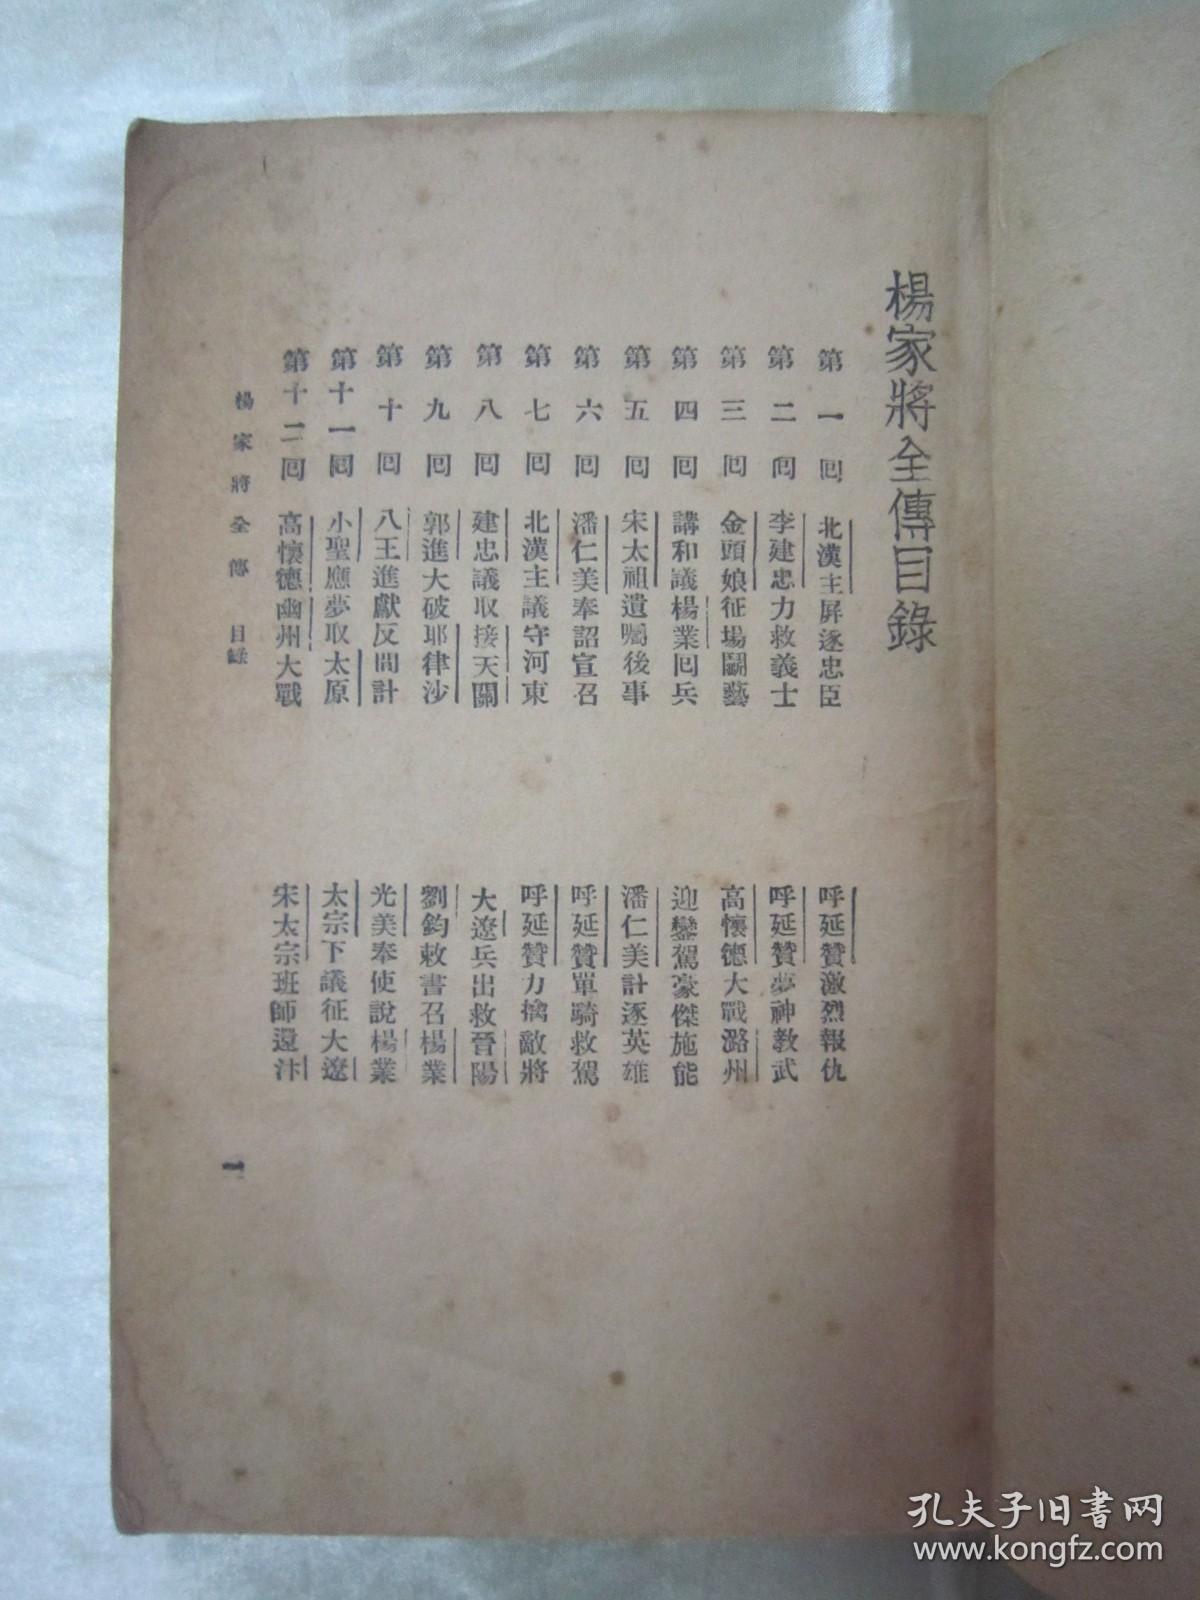 楊家將全傳目錄
第一回 北漢主屏逐忠臣 呼延贊激烈報仇
第二回 李建忠力救義士 呼延贊夢神教武
第三回 金頭娘征場鬭藝 高懷德大戰潞州
第四回 講和議楊業回兵 迎鑾駕豪傑施能
第五回 宋太祖遺囑後事 潘仁美計逐英雄
第六回 潘仁美奉詔宣召 呼延贊單騎救駕
第七回 北漢主議守河東 呼延贊力擒敵將
第八回 建忠議取接天關 大遼兵出救晉陽
第九回 郭進大破耶律沙 劉鈞敕書召楊業
第十回 八王進獻反間計 光美奉使說楊業
第十一回 小聖應夢取太原 太宗下議征大遼
第十二回 高懷德幽州大戰 宋太宗班師還汴
楊家將全傳 目錄 一
孔夫子旧书网
www.kongfz.com